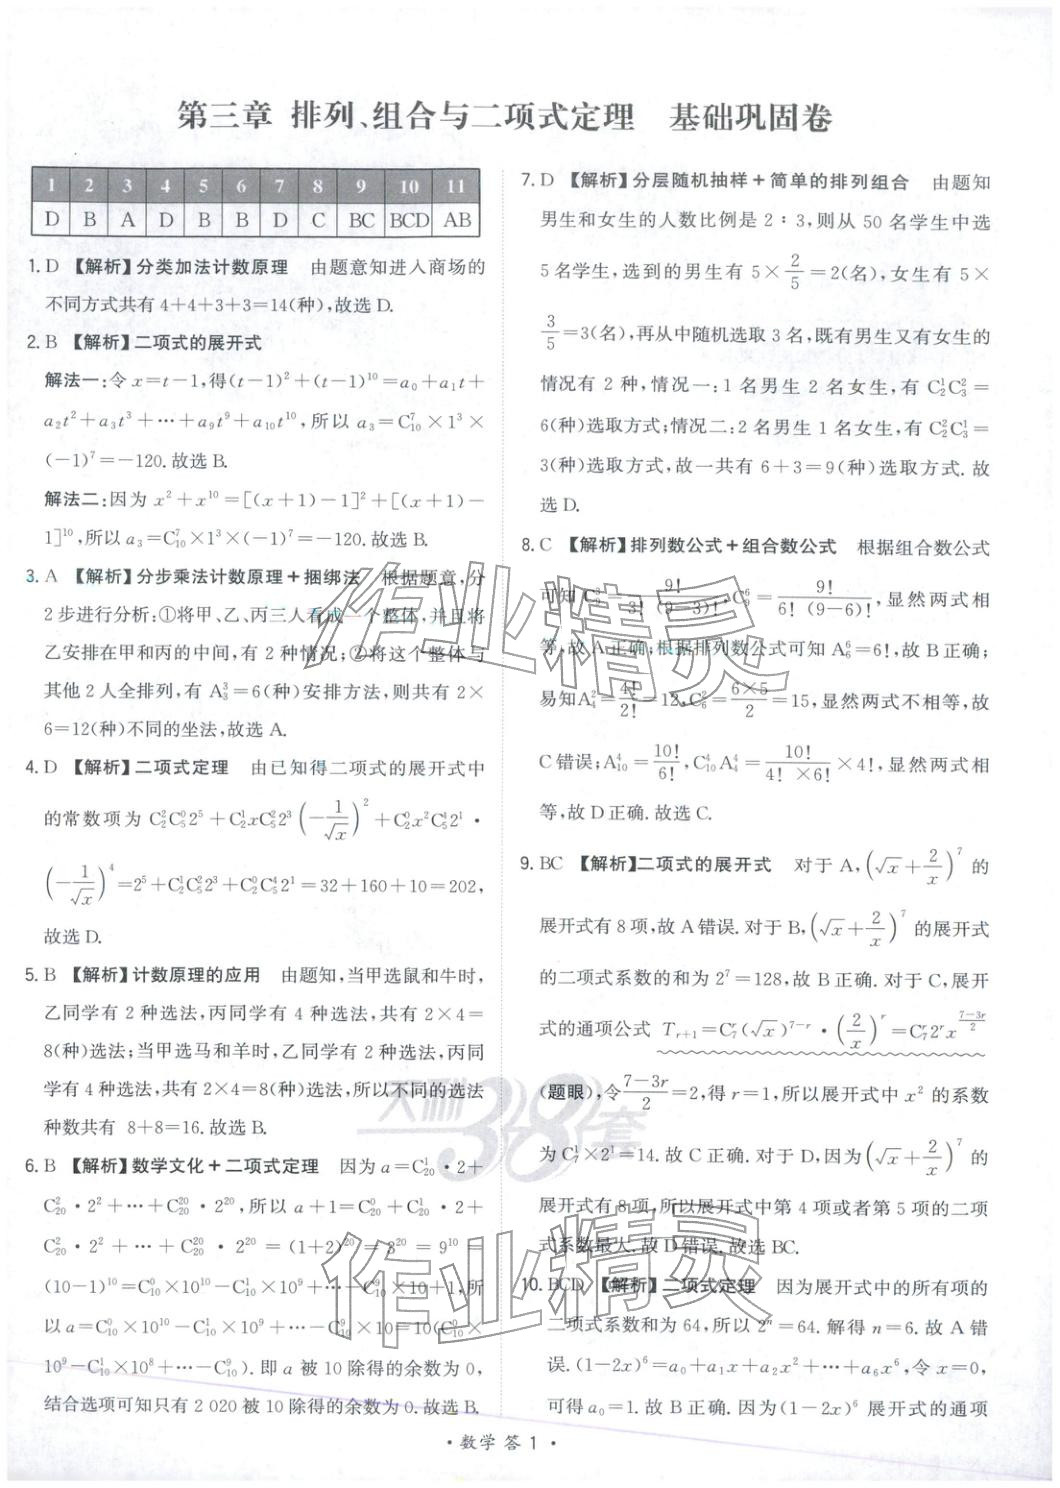 第三章 排列、组合与二项式定理 基础巩固卷
1 2 3 4 5 6 7 8 9 10 11
D B A D B B D C BC BCD AB
1. D 【解析】分类加法计数原理 由题意知进入商场的
不同方式共有 4+4+3+3=14(种),故选 D.
2. B 【解析】二项式的展开式
解法一:令 x=t−1,得(t−1)²+(t−1)¹⁰=a₀+a₁t+
a₂t²+a₃t³+…+a₉t⁹+a₁₀t¹⁰,所以 a₃=C₁₀⁷×1³×
(−1)⁷=−120.故选 B.
解法二:因为 x²+x¹⁰=[(x+1)−1]²+[(x+1)−
1]¹⁰,所以 a₃=C₁₀⁷×1³×(−1)⁷=−120.故选 B.
3. A 【解析】分步乘法计数原理+捆绑法 根据题意,分
2 步进行分析:①将甲、乙、丙三人看成一个整体,并且将
乙安排在甲和丙的中间,有 2 种情况;②将这个整体与
其他 2 人全排列,有 A₃³=6(种)安排方法,则共有 2×
6=12(种)不同的坐法,故选 A.
4. D 【解析】二项式定理 由已知得二项式的展开式中
的常数项为 C₂²C₅⁰2⁵+C₂¹xC₅²2³(−1/√x)²+C₂⁰x²C₅⁴2¹·
(−1/√x)⁴=2⁵+C₂¹C₅²2³+C₂⁰C₅⁴2¹=32+160+10=202,
故选 D.
5. B 【解析】计数原理的应用 由题知,当甲选鼠和牛时,
乙同学有 2 种选法,丙同学有 4 种选法,共有 2×4=
8(种)选法;当甲选马和羊时,乙同学有 2 种选法,丙同
学有 4 种选法,共有 2×4=8(种)选法,所以不同的选法
种数共有 8+8=16.故选 B.
6. B 【解析】数学文化+二项式定理 因为 a=C₂₀¹·2+
C₂₀²·2²+…+C₂₀²⁰·2²⁰,所以 a+1=C₂₀⁰+C₂₀¹·2+
C₂₀²·2²+…+C₂₀²⁰·2²⁰=(1+2)²⁰=3²⁰=9¹⁰=
(10−1)¹⁰=C₁₀⁰×10¹⁰−C₁₀¹×10⁹+…−C₁₀⁹×10+1,所
以 a=C₁₀⁰×10¹⁰−C₁₀¹×10⁹+…−C₁₀⁹×10=10(C₁₀⁰×
10⁹−C₁₀¹×10⁸+…−C₁₀⁹).即 a 被 10 除得的余数为 0,
结合选项可知只有 2 020 被 10 除得的余数为 0.故选 B.
7. D 【解析】分层随机抽样+简单的排列组合 由题知
男生和女生的人数比例是 2∶3,则从 50 名学生中选
5 名学生,选到的男生有 5×2/5=2(名),女生有 5×
3/5=3(名),再从中随机选取 3 名,既有男生又有女生的
情况有 2 种,情况一:1 名男生 2 名女生,有 C₂¹C₃²=
6(种)选取方式;情况二:2 名男生 1 名女生,有 C₂²C₃¹=
3(种)选取方式,故一共有 6+3=9(种)选取方式.故
选 D.
8. C 【解析】排列数公式+组合数公式 根据组合数公式
可知 C₉³=9!/3!(9−3)!,C₉⁶=9!/6!(9−6)!,显然两式相
等,故 A 正确;根据排列数公式可知 A₆⁶=6!,故 B 正确;
易知A₄²=4!/2!=12,C₆²=6×5/2=15,显然两式不相等,故
C 错误;A₁₀⁴=10!/6!,C₁₀⁴A₄⁴=10!/4!×6!×4!,显然两式相
等,故 D 正确.故选 C.
9. BC 【解析】二项式的展开式 对于 A,(√x+2/x)⁷ 的
展开式有 8 项,故 A 错误.对于 B,(√x+2/x)⁷的展开式
的二项式系数的和为 2⁷=128,故 B 正确.对于 C,展开
式的通项公式 Tᵣ₊₁=C₇ʳ(√x)⁷⁻ʳ·(2/x)ʳ=C₇ʳ2ʳx^((7−3r)/2)
(题眼),令(7−3r)/2=2,得 r=1,所以展开式中 x² 的系数
为 C₇¹×2¹=14.故 C 正确.对于 D,因为(√x+2/x)⁷ 的
展开式有 8 项,所以展开式中第 4 项或者第 5 项的二项
式系数最大.故 D 错误.故选 BC.
10. BCD 【解析】二项式定理 因为展开式中的所有项的
二项式系数和为 64,所以 2ⁿ=64.解得 n=6.故 A 错
误.(1−2x)⁶=a₀+a₁x+a₂x²+…+a₆x⁶,令 x=0,
可得 a₀=1.故 B 正确.因为(1−2x)⁶ 展开式的通项
·数学 答 1·
作业精灵
天利38套
作业精灵